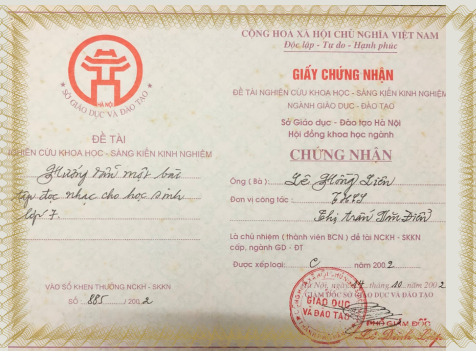 HÀ NỘI
SỞ GIÁO DỤC VÀ ĐÀO TẠO
ĐỀ TÀI
NGHIÊN CỨU KHOA HỌC - SÁNG KIẾN KINH NGHIỆM
Hướng dẫn một bài
tập đọc nhạc cho học sinh
lớp 7.
VÀO SỔ KHEN THƯỞNG NCKH - SKKN
SỐ : 885 / 2002
CỘNG HOÀ XÃ HỘI CHỦ NGHĨA VIỆT NAM
Độc lập - Tự do - Hạnh phúc
GIẤY CHỨNG NHẬN
ĐỀ TÀI NGHIÊN CỨU KHOA HỌC - SÁNG KIẾN KINH NGHIỆM
NGÀNH GIÁO DỤC - ĐÀO TẠO
Sở Giáo dục - Đào tạo Hà Nội
Hội đồng khoa học ngành
CHỨNG NHẬN
Ông ( Bà ) : Lê Hồng Liên
Đơn vị công tác :
Thị trấn
Là chủ nhiệm ( thành viên BCN ) đề tài NCKH - SKKN
cấp, ngành GD - ĐT
Được xếp loại: C năm 2002
Hà Nội, ngày tháng 10 năm 2002
GIÁM ĐỐC SỞ GIÁO DỤC VÀ ĐÀO TẠO
GIÁO DỤC
VÀ ĐÀO TẠO
PHÓ GIÁM ĐỐC